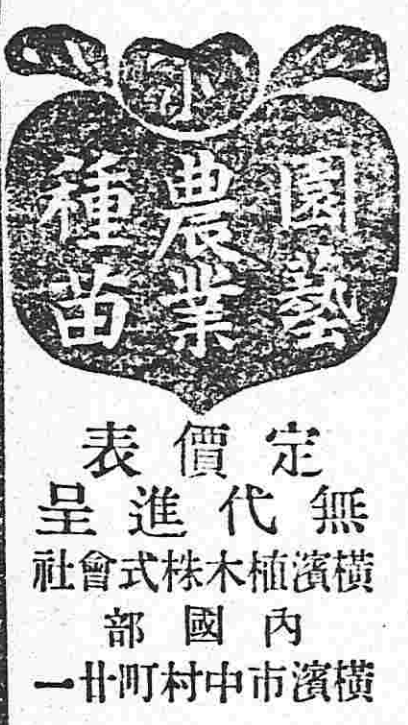 園藝
農業
種苗
定價表
無代進呈
橫濱植木株式會社
內國部
橫濱市中村町廿一